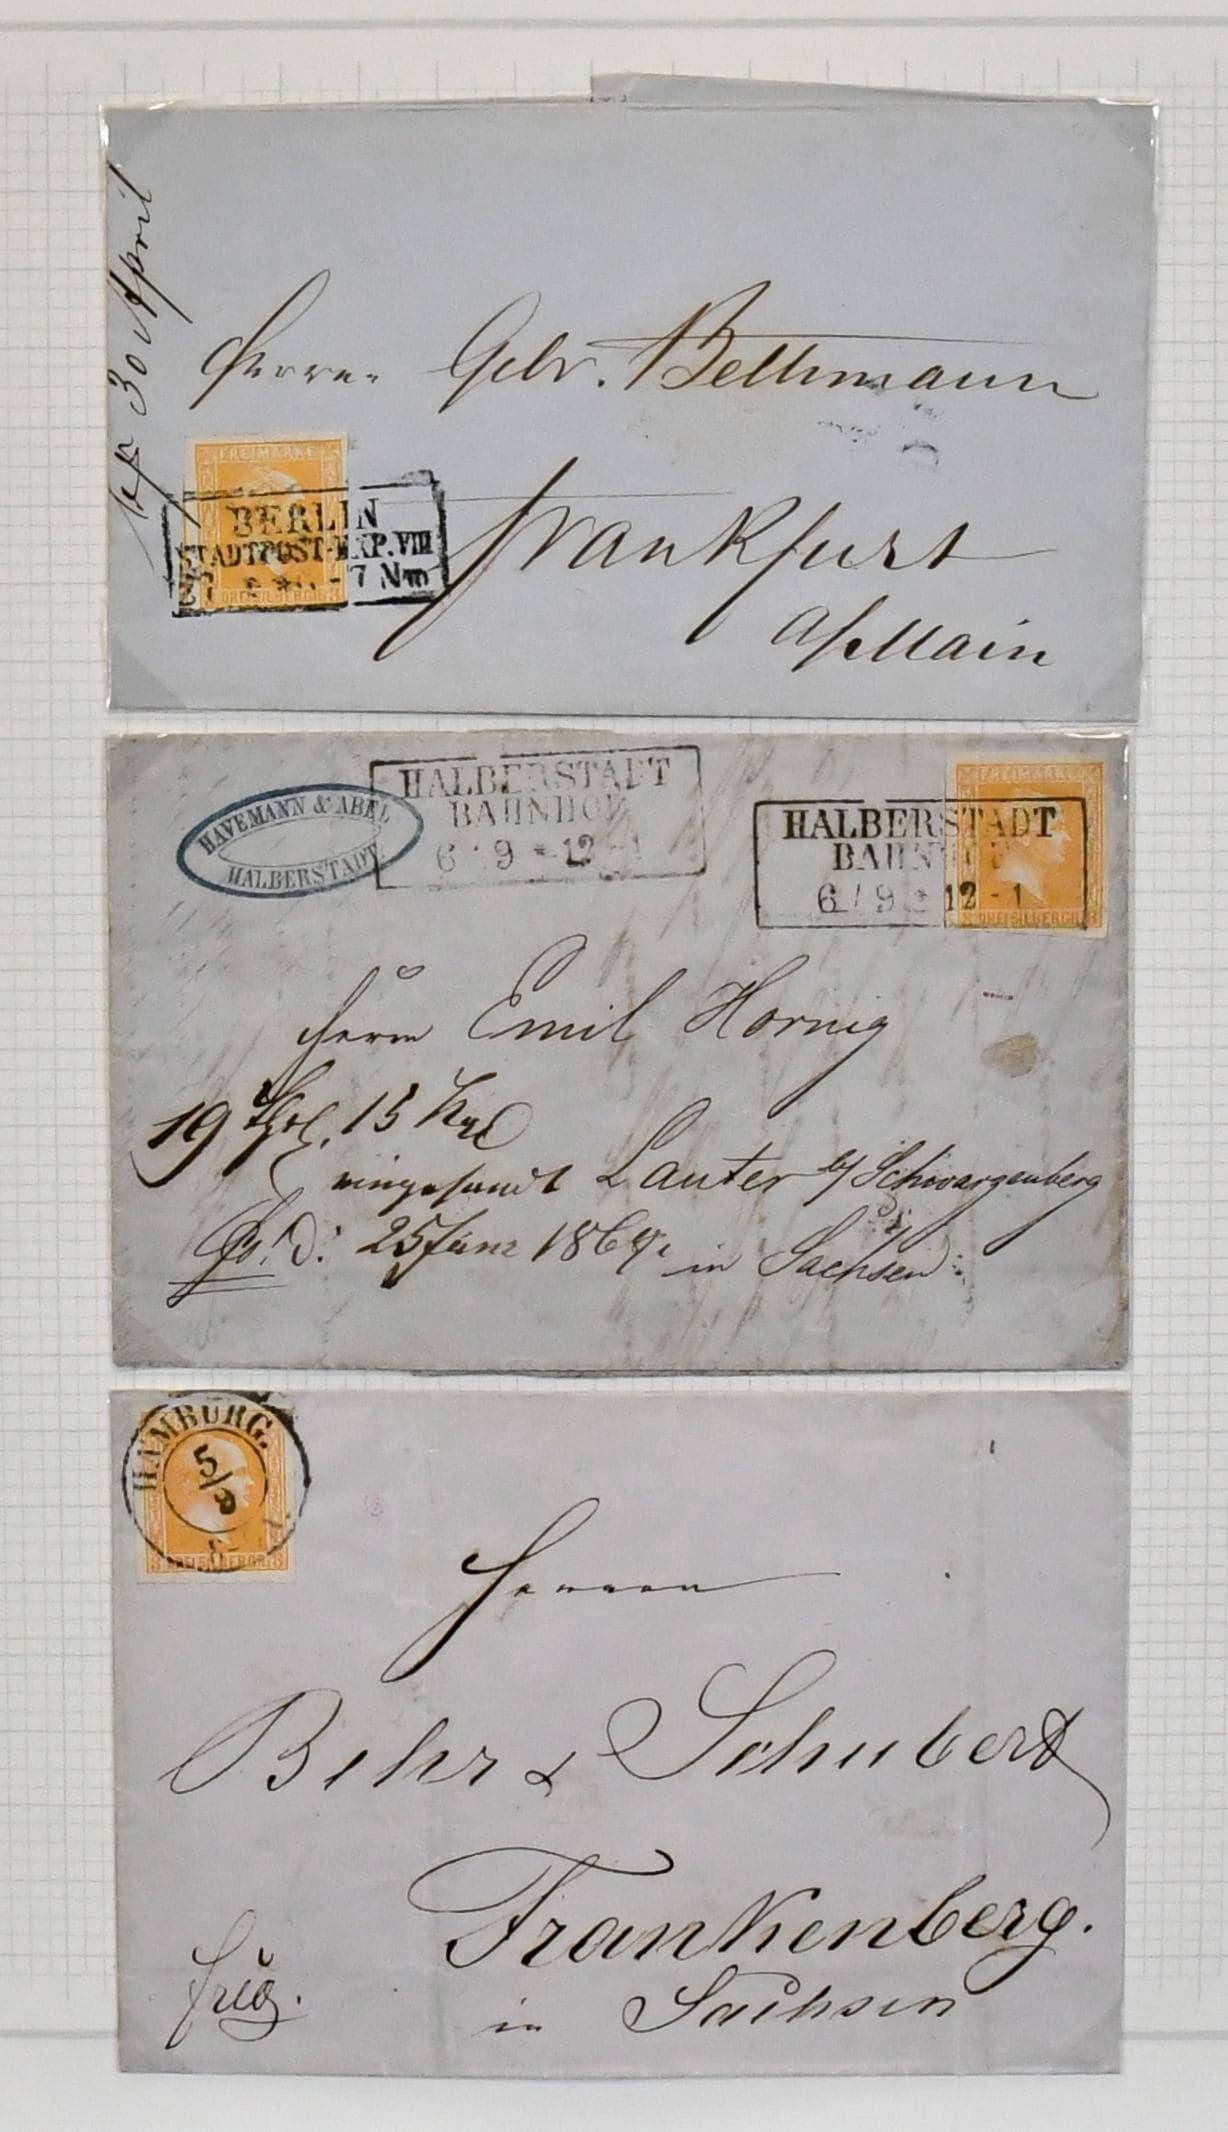 30 April
Herren Gebr. Bethmann
FREIMARKE
BERLIN
STADTPOST-EXP. VIII
27 - 7 Nm
DREI SILBERGR.
Frankfurt
a/Main
HALBERSTADT
BAHNHOF
6 9 * 12 - 1
HAVEMANN & ABEL
HALBERSTADT
FREIMARKE
HALBERSTADT
BAHNHOF
6 / 9 * 12 - 1
3 DREI SILBERGR. 3
Herrn Emil Hornig
19 15
eingesandt Lauter b/ Schwarzenberg
25 in Sachsen
HAMBURG.
5/9
3 DREI SILBERGR. 3
Herren
Behr & Schubert
Frankenberg.
in Sachsen